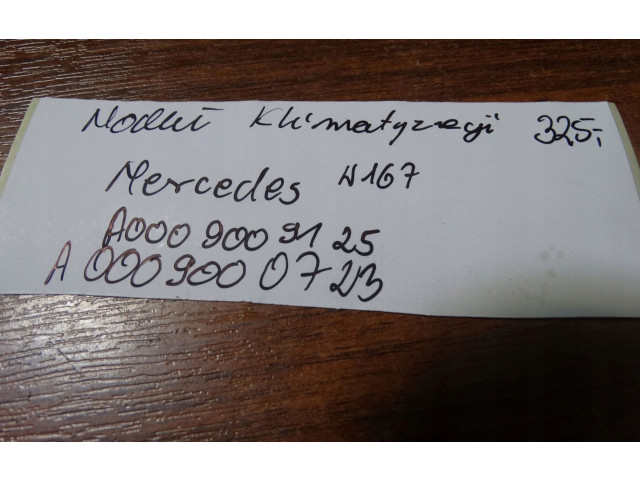 Moduł Klimatyzacji 325,-
Mercedes W167
A000 900 91 25
A 000 900 07 23